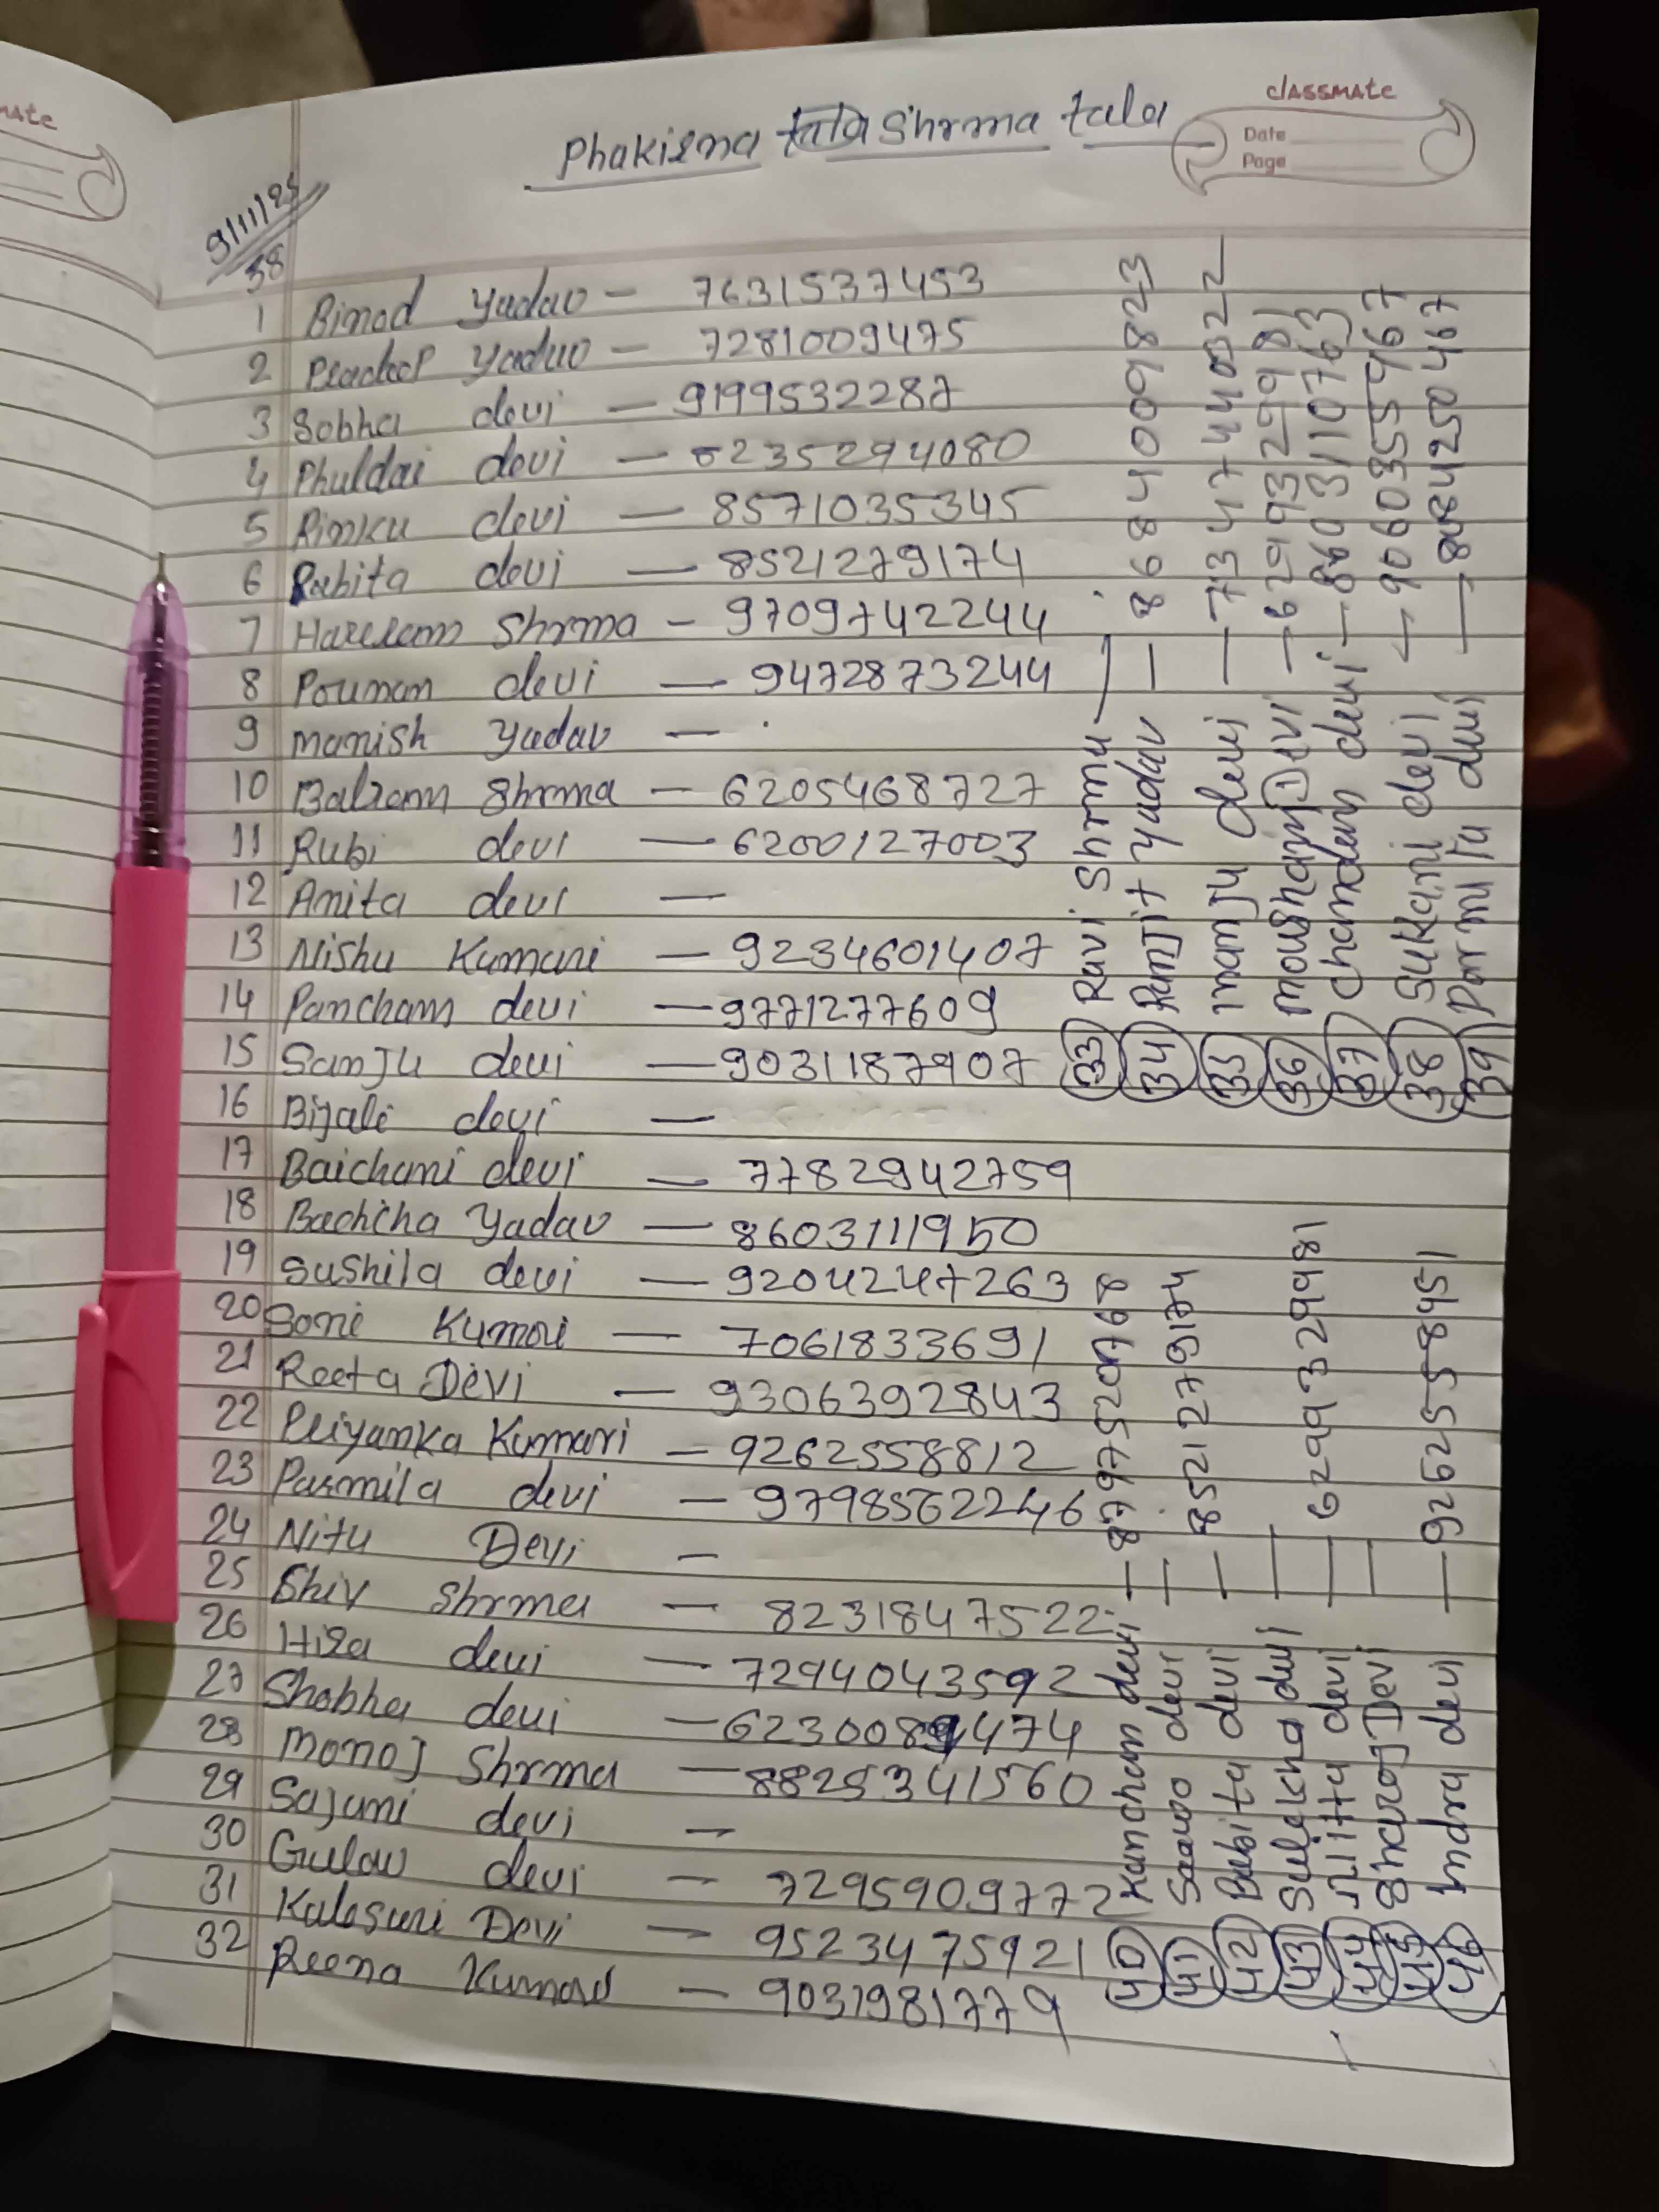 classmate
Date
Page
Phakirna tala Shrma tala
9/11/25
38
1 Binod Yadav - 7631537453
2 Yaduv - 7281009475
3 Sobha devi - 9199532287
4 Phuldai devi - 6235294080
5 Rinku devi - 8571035345
6 Rabita devi - 8521279174
7 Hareram Shrma - 9709742244
8 Pounam devi - 9472873244
9 Manish Yadav -
10 Balram Shrma - 6205468727
11 Rubi devi - 6200127003
12 Anita devi -
13 Nishu Kumari - 9234601407
14 Pancham devi - 9771277609
15 Sanju devi - 9031187907
16 Bijali devi -
17 Baichani devi - 7782942759
18 Bachcha Yadav - 8603111950
19 Sushila devi - 9204247263
20 Soni Kumari - 7061833691
21 Reeta Devi - 9306392843
22 Priyanka Kumari - 9262558812
23 Parmila devi - 9798562246
24 Nitu Devi -
25 Shiv Shrma - 8231847522
26 Hira devi - 7294043592
27 Shobha devi - 474
28 Monoj Shrma - 8825341560
29 Sajani devi -
30 Gulaw devi - 7295909772
31 Kalesuri Devi - 9523475921
32 Reena Kumari - 9031981779
33 Ravi Shrma -
34 Ranjit Yadav - 8684009823
35 Manju devi - 7347440322
36 Mousham Devi - 6299329981
37 Chandan devi - 8603110763
38 Sukkani devi - 9060355967
39 Parmila devi - 8084250467
40 Kancham devi - 8797520768
41 devi -
42 Babita devi - 8521279174
43 Sulekha devi -
44 devi - 6299329981
45 Devi -
46 Indra devi - 9262558451